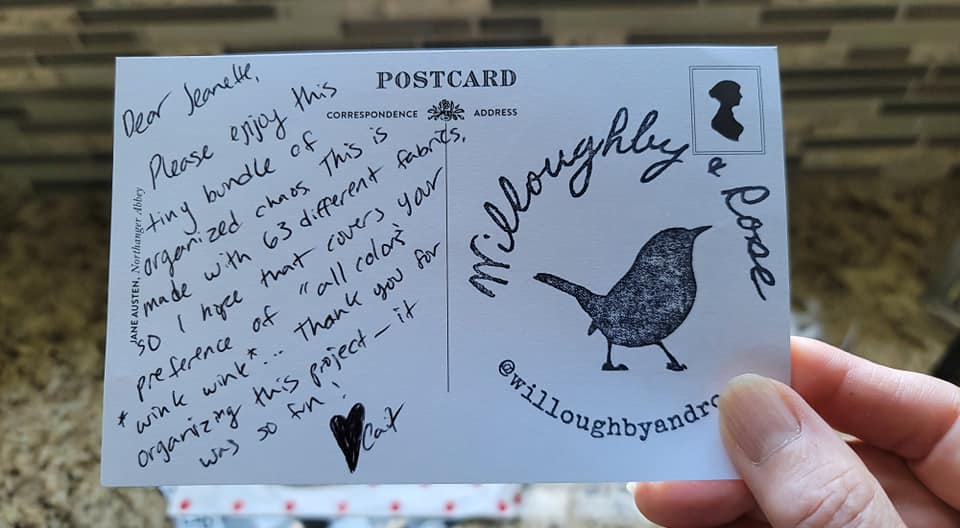 POSTCARD
CORRESPONDENCE ADDRESS
Dear Jeanette,
Please enjoy this
tiny bundle of
organized chaos. This is
made with 63 different fabrics,
so I hope that covers your
preference of "all colors"
*wink wink*... Thank you for
organizing this project - it
was so fun!
Cat
JANE AUSTEN, Northanger Abbey
Willoughby & Rose
@willoughbyandro